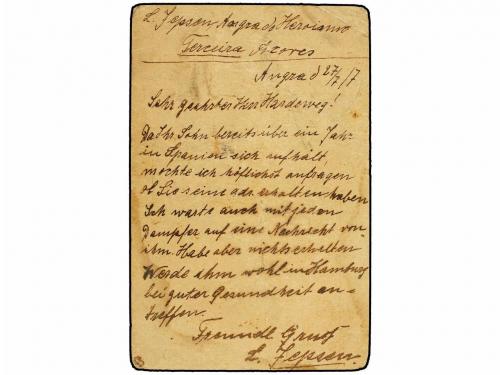 L. Jepsen Angra do Heroismo
Terceira Azores
Angra d 27/7/7
Sehr geehrter Herr Hardeweg!
Da Ihr Sohn bereits über ein Jahr
in Spanien sich aufhält
möchte ich höflichst anfragen
ob Sie seine adr. erhalten haben
Ich warte auch mit jeden
Dampfer auf eine Nachricht von
ihm. Habe aber nichts erhalten
Werde ihm wohl in Hamburg
bei guter Gesundheit an-
treffen.
Freundl Gruß
L. Jepsen.